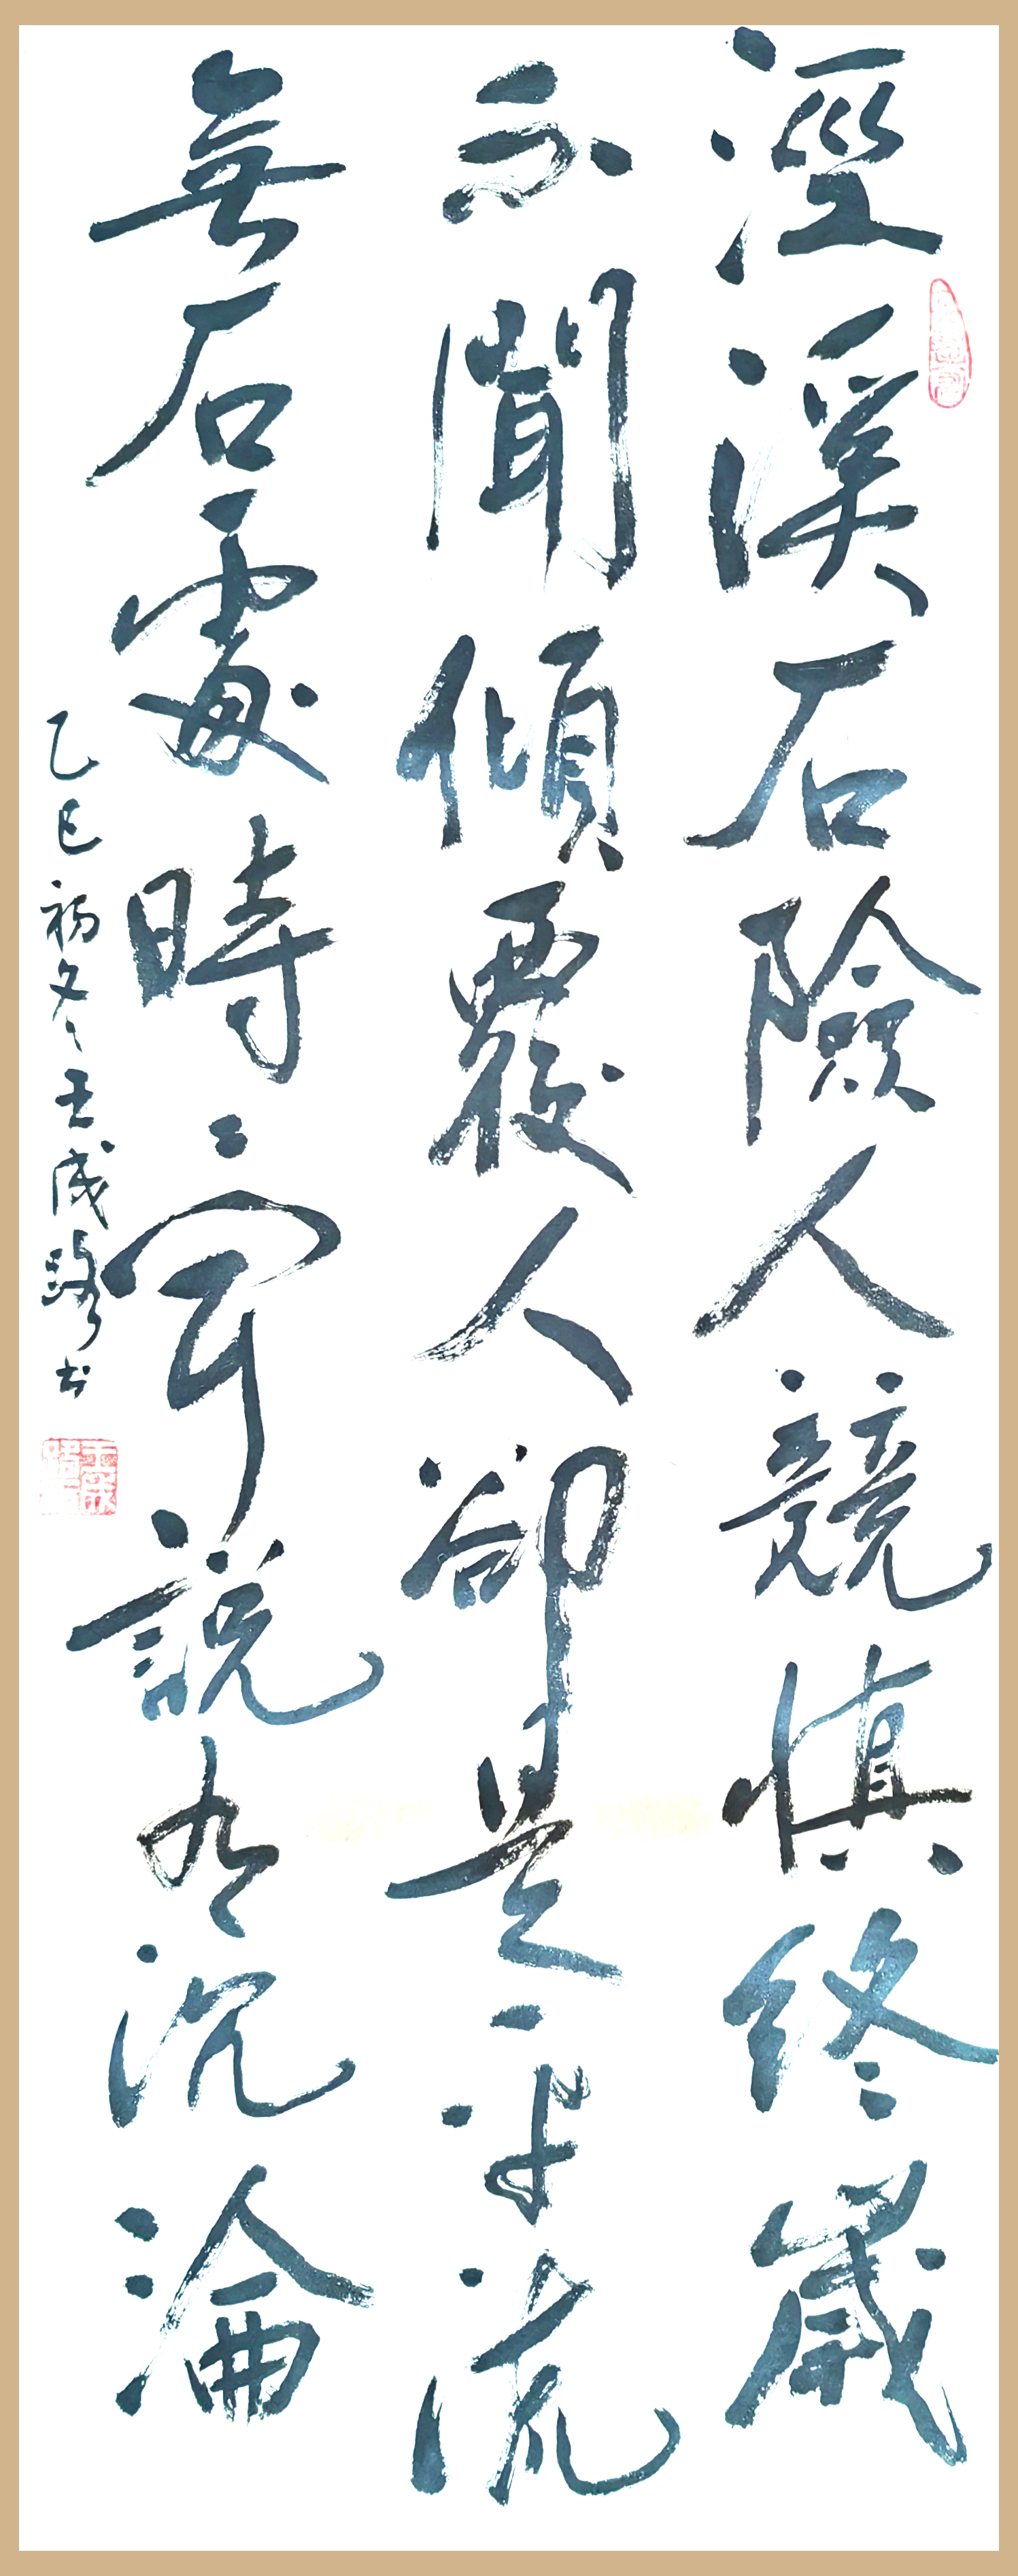 涇溪石險人競慎終歲
不聞傾覆人卻是平流
無石處時時聞說有沉淪
乙巳初冬王成
书